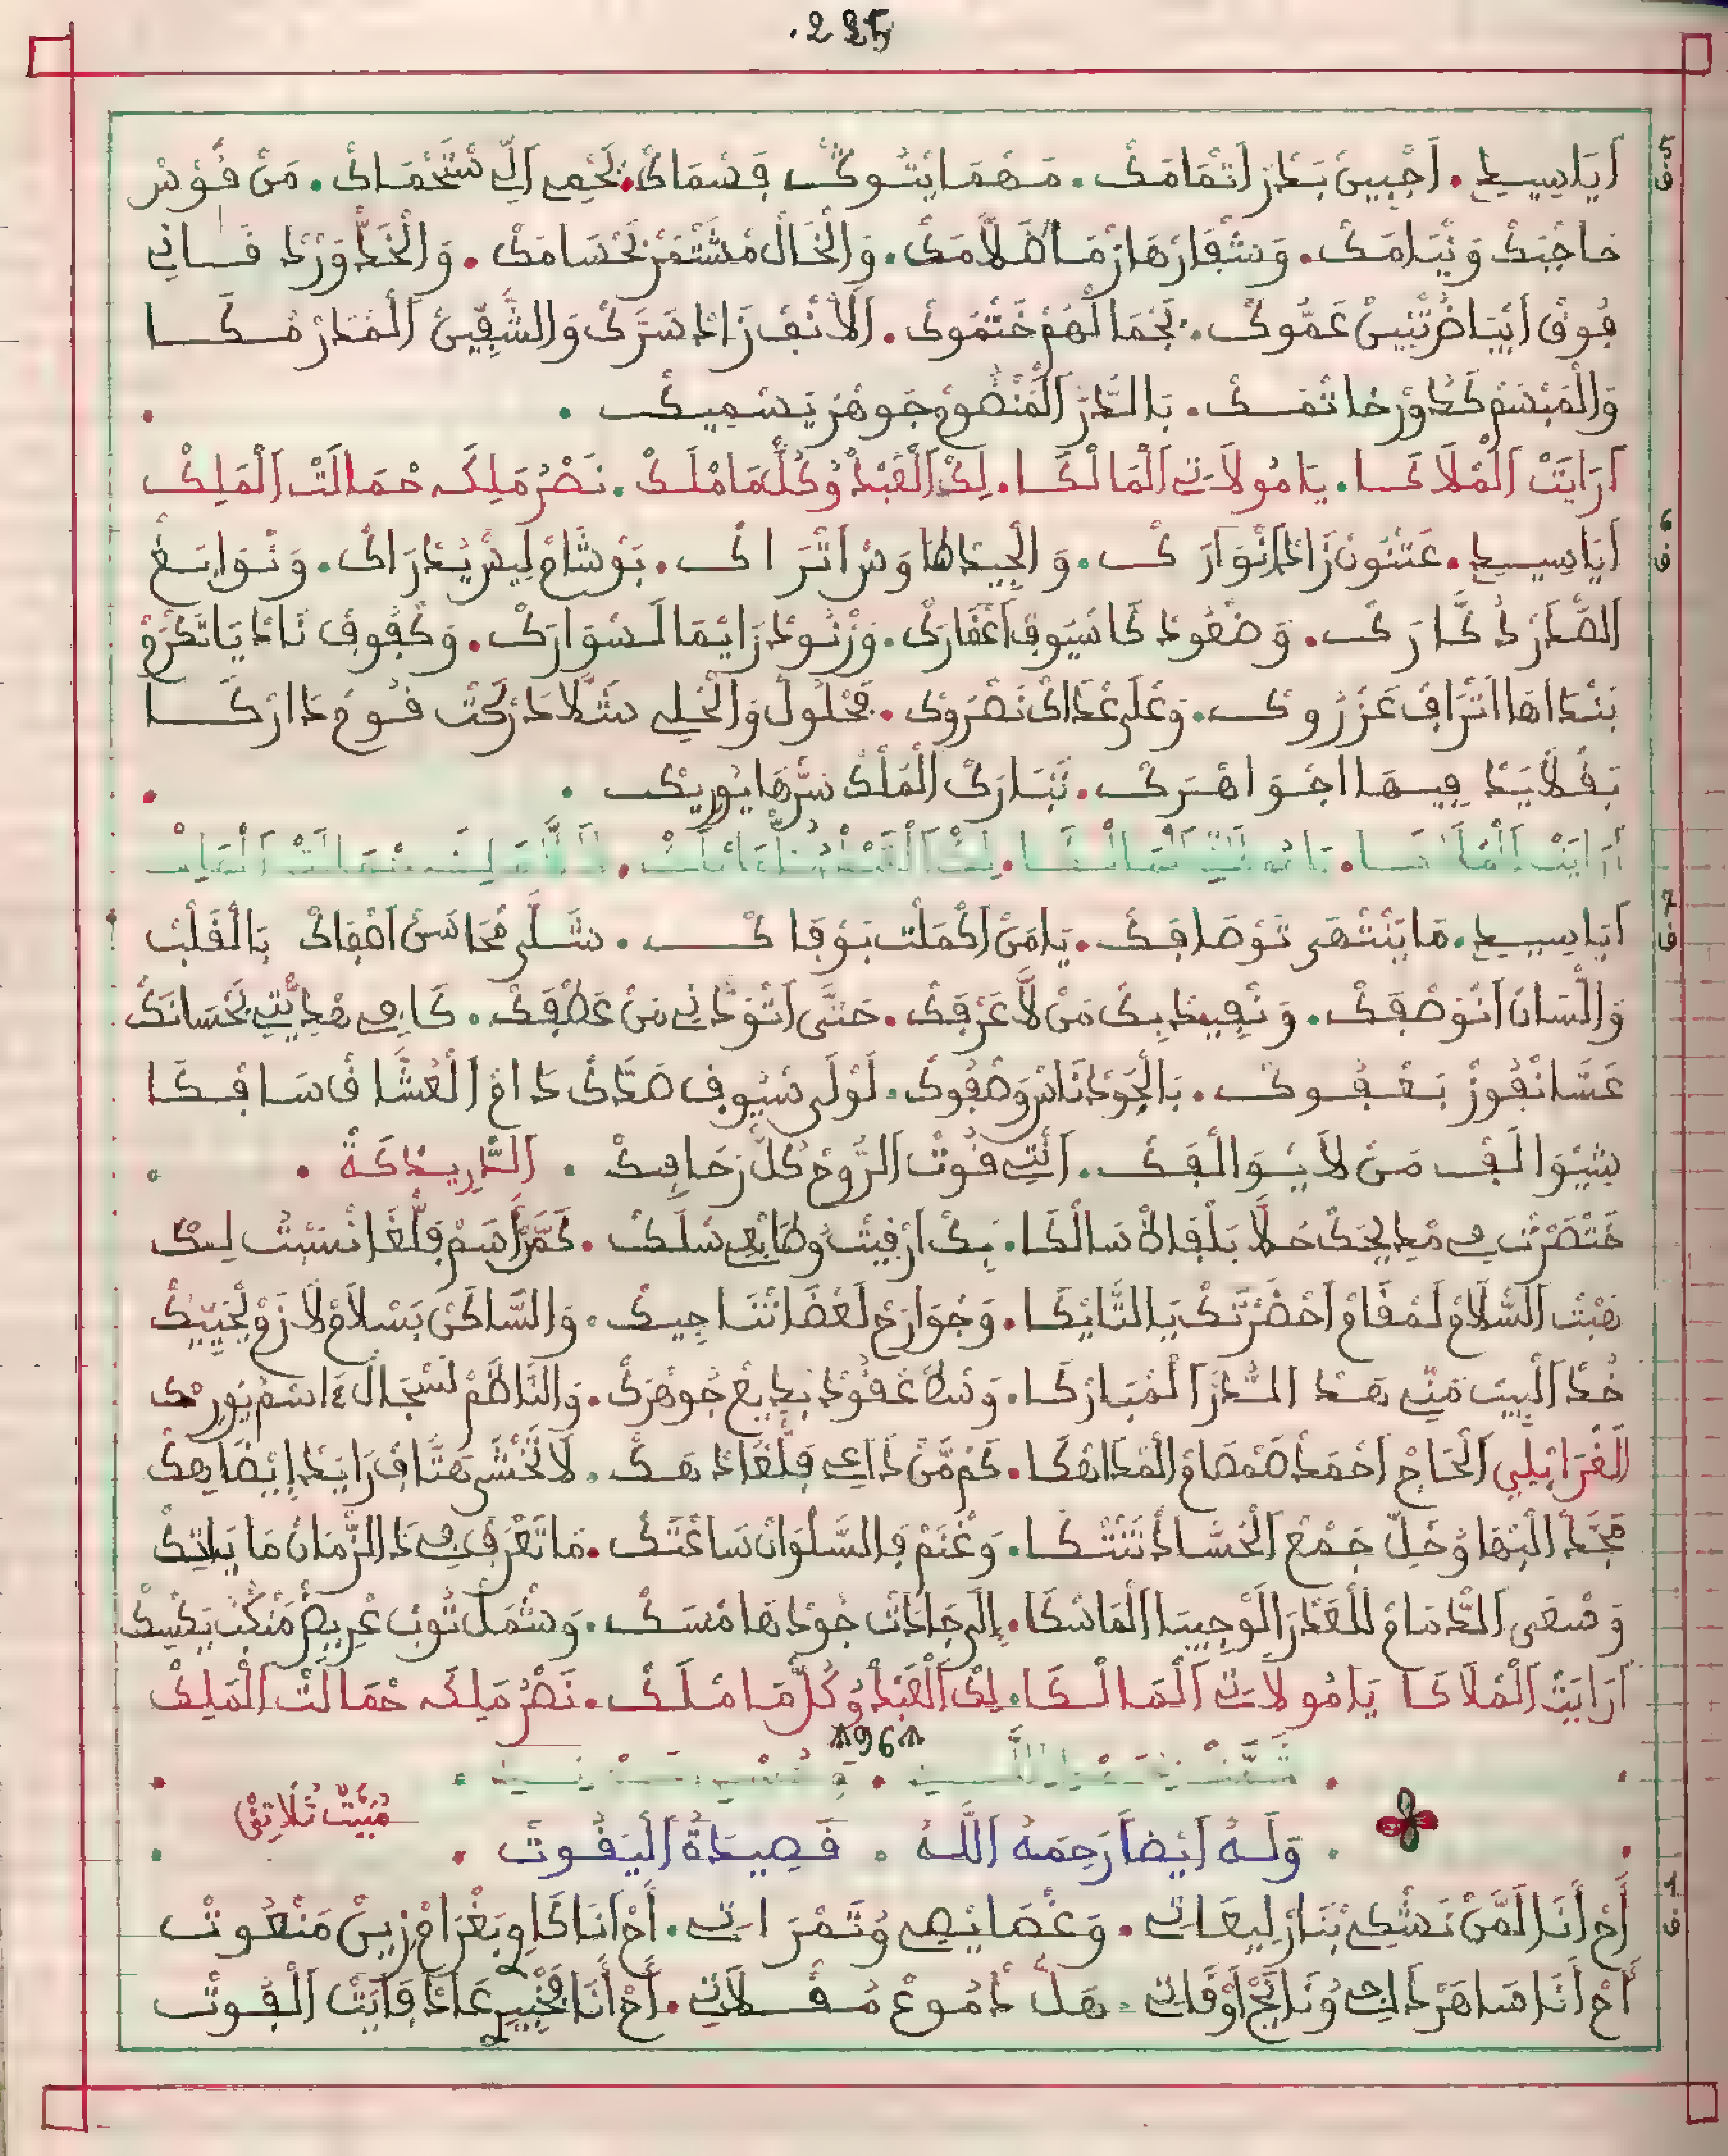 .225
5 ف
أَيَاسِيدِ . اَجْبِينْ بَدْرْ اَتْمَامَكْ . مَهْمَا يَتُّوكْ فَسْمَاكْ يَخْمِ اَلِّي سْتَحْمَاكْ . مَنْ فُوسْ
حَاجْبَكْ وَنْيَامَكْ . وَشْفَارْهَا زْمَاهْلَامَكْ . وَالْخَالْ مَشْتْمَرْ نَحْسَامَكْ . وَالْخَدّْ وَرْدْ فَانِي
فُوقْ اَبْيَاضْ تْبِينْ عَمُّوكْ . لَهُمْ خَتْمُوكْ . اَلَانْفْ زَادْ سَرَّكْ وَالشّْفِينْ اَلْمْدَرْمْكَا
وَالْمَبْسَمْ كَدُّورْ خَاتْمَكْ . بَالدُّرّْ اَلْمَنْضُومْ جَوْهَرْ يَسْمِيكْ .
اَرَايَتْ اَلْمْلَاكَا . يَا مُولَاتِي اَلْمَالْكَا . لِكْ اَلْعَبْدْ وُكُلّْ مَا مْلَكْ . نَصْرْ مَلِكَه حْمَالَتْ اَلْمَلِكْ
6 ف
اَيَاسِيدِ . عَتْنُونْ زَادْ اَنْوَارَكْ . وَالْجِيدْ طَاوَسْ اَتْرَاكْ . بَوْشَامْ لِيسْ يُدْرَاكْ . وَنْوَابَغْ
اَلصّْدَرْ دْكَّارَكْ . وَضْعُودْ كَاسْيُوفْ اَعْفَارَكْ . وَزْنُودْ زَايْمَا لَسْوَارَكْ . وَكْفُوفْ نَادْيَا تَكْرَمْ
بَنْدَاهَا اَتْرَافْ عَزْرُوكْ . وَعْلَى عْدَاكْ نَصْرُوكْ . فَحْلُولْ وَالْحْلِي سْتَلَّا دَرْكَتْ فُوحْ دَارْكَا
بَفْلَايَدْ فِيهَا اجْوَاهْرَكْ . تْبَارَكْ الْمَلْكْ سَرّْهَا يُورِيكْ .
7 ف
اَيَاسِيدِ . مَا يَنْتْهَى تَوْصَافَكْ . يَامَنْ اَكْمَلْتْ بَوْفَاكْ . سَلَّى مْحَاسَنْ اَصْفَاكْ بَالْفَلْبْ
وَالْلّْسَانْ اَنْوَصْفَكْ . وَنْفِيدْ بِكْ مَنْ لَا عَرْفَكْ . حَتَّى اَتْوَدْنِي مَنْ عَطْفَكْ . كَافِي هْدِيتِي بَحْسَانَكْ
عَسَّا نْفُوزْ بَعْفُوكْ . بَالْجُودْ نَاسْ وَصْفُوكْ . لَوْلَى سْيُوفْ صَدَّكْ دَامْ اَلْعُشَّاقْ سَافْكَا
سْيُوَالَفْ مَنْ لَا يْوَالْفَكْ . اَنْتِ فُوتْ الرُّوحْ كُلّْ زْحَافِكْ . اَلدّْرِيدْكَةْ .
خَتْصَرْتْ فِي مْدِيحَكْ حُلَّا بَلْفَاظْ سَالْكَا . بِكْ اَرْفِيتْ وطَابْعِي سْلَكْ . كَمَّنْ رَاسَمْ فَلّْغَا نْسَبْتْ لِكْ
هَبْتْ اَلسّْلَامْ لَمْفَامْ اَحْضَرْتَكْ يَا النَّايْكَا . وَجْوَارَحْ لَعْضَا تْنَاجِيكْ . وَالسَّاكَنْ بَسْلَامْ لَازَمْ يْحَيِّيكْ
خُدْ اَلْبِيتْ مَنِّي هَدْ الدُّرّْ اَلْمْبَارْكَا . وَسْطْ عْقُودْ بْدِيعْ جُوهْرَكْ . وَالنَّاظَمْ لَسْجَالْ ءَاسْمْ يُورِيكْ
اَلْغَرَابْلِي اَلْحَاجْ اَحْمَدْ صَمْصَامْ الْمْدَاهْكَا . كَمْ مَّنْ دَاعِي فَلّْغَادْ هَكْ . لَا تَخْشَى هَتَّافْ رَايَدْ اِيْضَاهِكْ
مَجَّدْ اَلْبْهَا وْخَلِّ جَمْعْ اَلْحُسَّادْ تَنْتْكَا . وَغْنَمْ فَالسّْلْوَانْ سَاعْتَكْ . مَا تَعْرَفْ فِي دَا الزّْمَانْ مَا يَاتِكْ
وَسْعَى اَلدّْمَامْ لَلْعَدْرَ الْوَجِيبَا اَلْمَاسْكَا . اِلَى جَادَتْ جُودْهَا مْسَكْ . وَشْمَلْ تُوبْ عْرِيضْ مَنْكَبْ يَكْسِكْ
اَرَايَتْ اَلْمْلَاكَا يَا مُولَاتِي اَلْمَالْكَا . لِكْ اَلْعَبْدْ وُكُلّْ مَا مْلَكْ . نَصْرْ مَلِكَه حْمَالَتْ اَلْمَلِكْ
96
مْبَيَّتْ ثُلَاتِي
. وَلَهُ اَيْضاً رَحِمَهُ اَللَّهُ . فَصِيدَةُ اَلْيَقُوتْ .
1 ف
أَحْ أَنَا اَلَمَّنْ نَشْكِي بْنَارْ لِيعَاتِي . وَعْصَايْصِي وُتَمْرَاتِي . أَحْ أَنَا كَاوِي بَغْرَامْ زِينْ مَنْعُوتْ
أَحْ أَنَا سَاهَرْ دَاجِي وُنَايَحْ اَوْقَاتِي . هَلّْ دْمُوعْ مُقْلَاتِي . أَحْ أَنَا مَخْيِيرْ عَادْ فَايَتْ اَلْقُوتْ